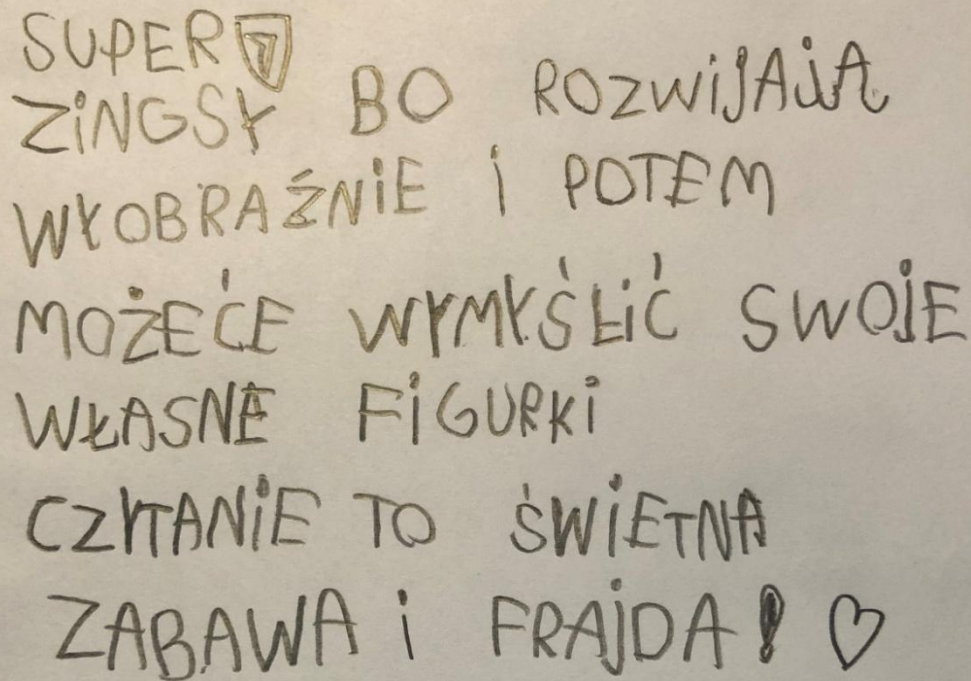 SUPER
ZiNGSY BO ROZWiJAJĄ
WYOBRAŹNiE i POTEM
MOŻEĆE WYMYŚLiĆ SWOJE
WŁASNE FiGURKi
CZYTANiE TO ŚWiETNA
ZABAWA i FRAJDA! ♡